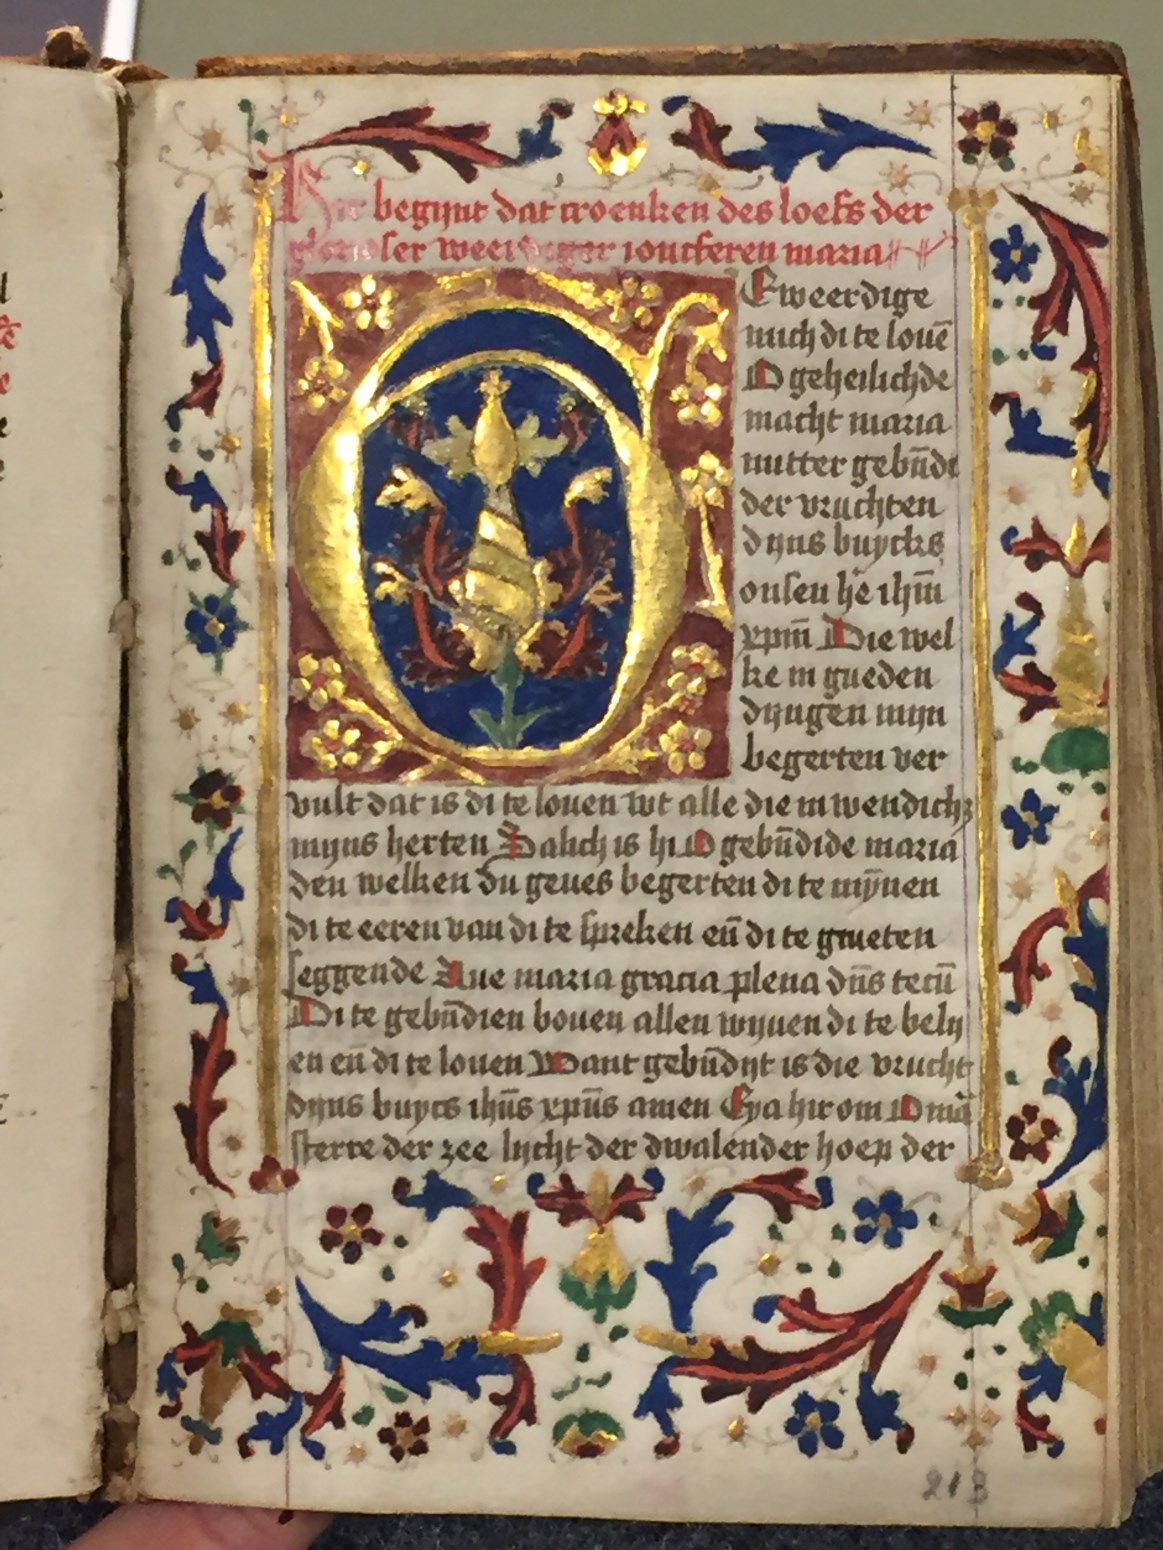 Hir begijnt dat croenken des loefs der
glorioser weerdiger ioncferen maria
O Eweerdige
mich di te louē
O geheilichde
macht maria
mutter gebn̄di
der vruchten
dijns buycks
onsen hē ihm̄
xpm̄ Die wel
ke in gueden
dijngen mijn
begerten ver
vult dat is di te louen wt alle die inwendich3
mijns herten Salich is hi O gebn̄dide maria
den welken du geues begerten di te mijnen
di te eeren van di te spreken en̄ di te grueten
seggende Aue maria gracia plena dn̄s tecū
Di te gebn̄dien bouen allen wijuen di te belij
en en̄ di te louen Want gebn̄dijt is die vrucht
dijns buycs ihūs xpūs amen Eya hir om O mā
sterre der zee lycht der dwalender hoep der
213